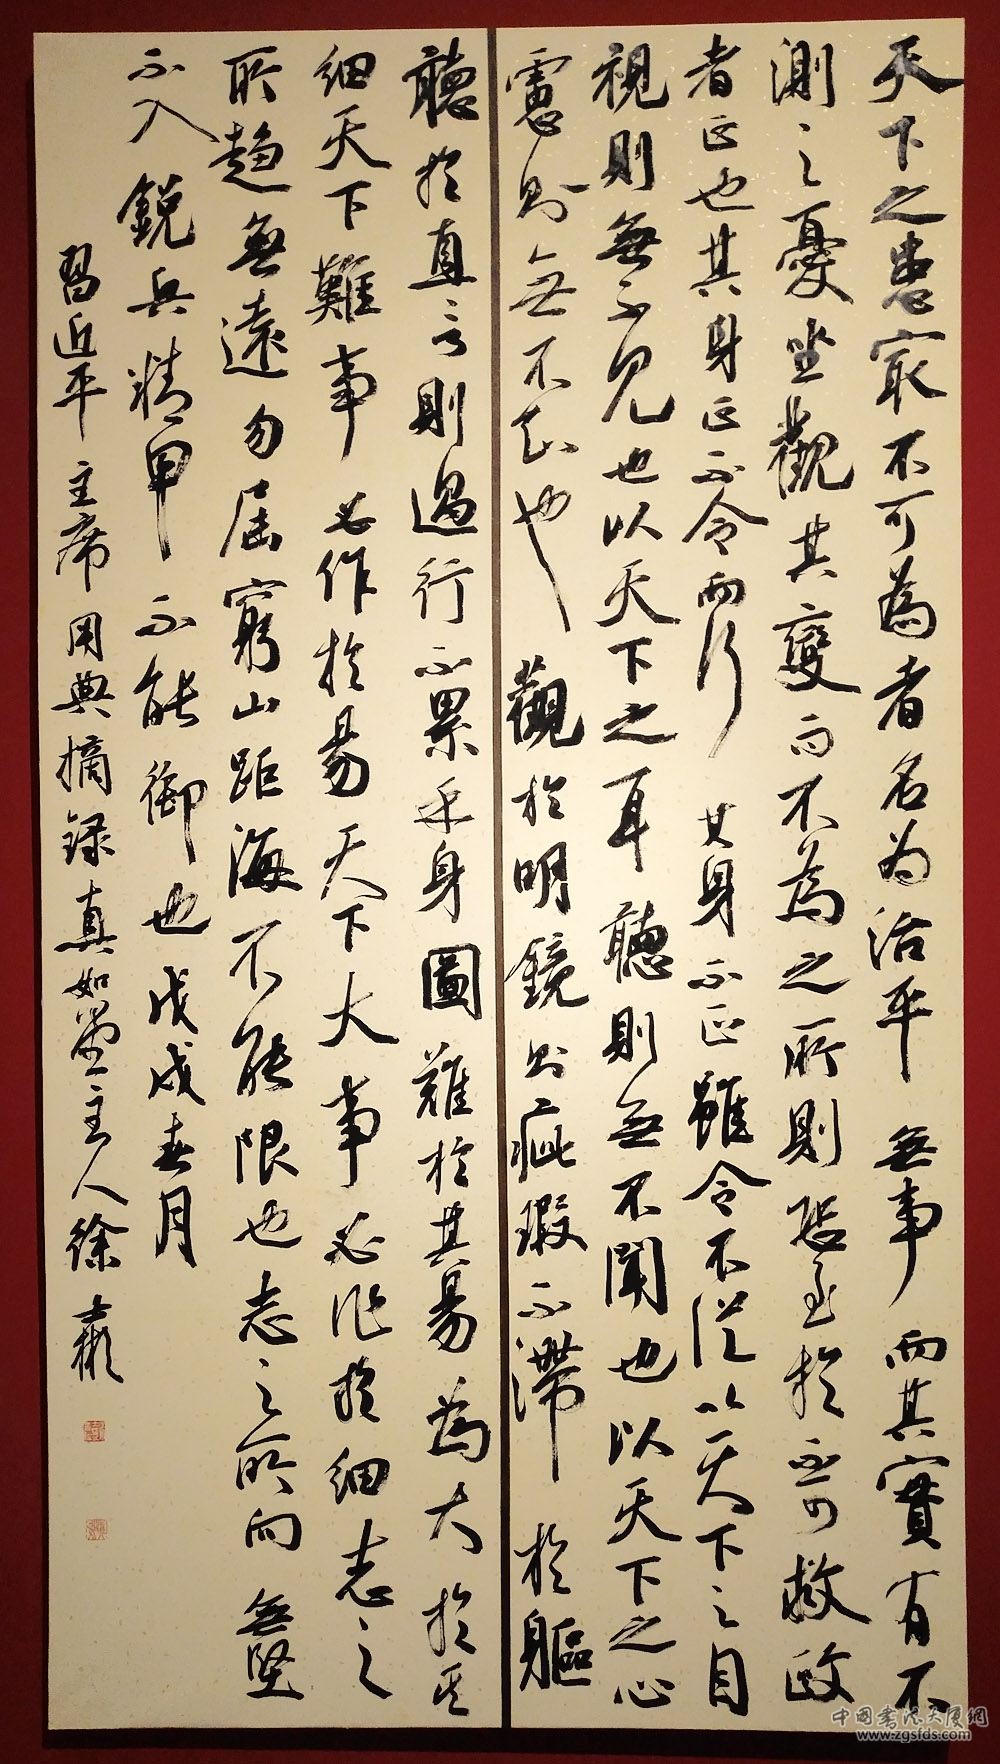 天下之患最不可為者名為治平無事而其實有不
測之憂坐觀其變而不為之所則恐至於不可救政
者正也其身正不令而行其身不正雖令不從以天下之目
視則無不見也以天下之耳聽則無不聞也以天下之心
慮則無不知也觀於明鏡則疵瑕不滯於軀
聽於直言則過行不累乎身圖難於其易為大於其
細天下難事必作於易天下大事必作於細志之
所趨無遠勿屆窮山距海不能限也志之所向無堅
不入銳兵精甲不能御也戊戌春月
習近平主席用典摘録真如堂主人徐
中国书法大厦網
www.zgsfds.com